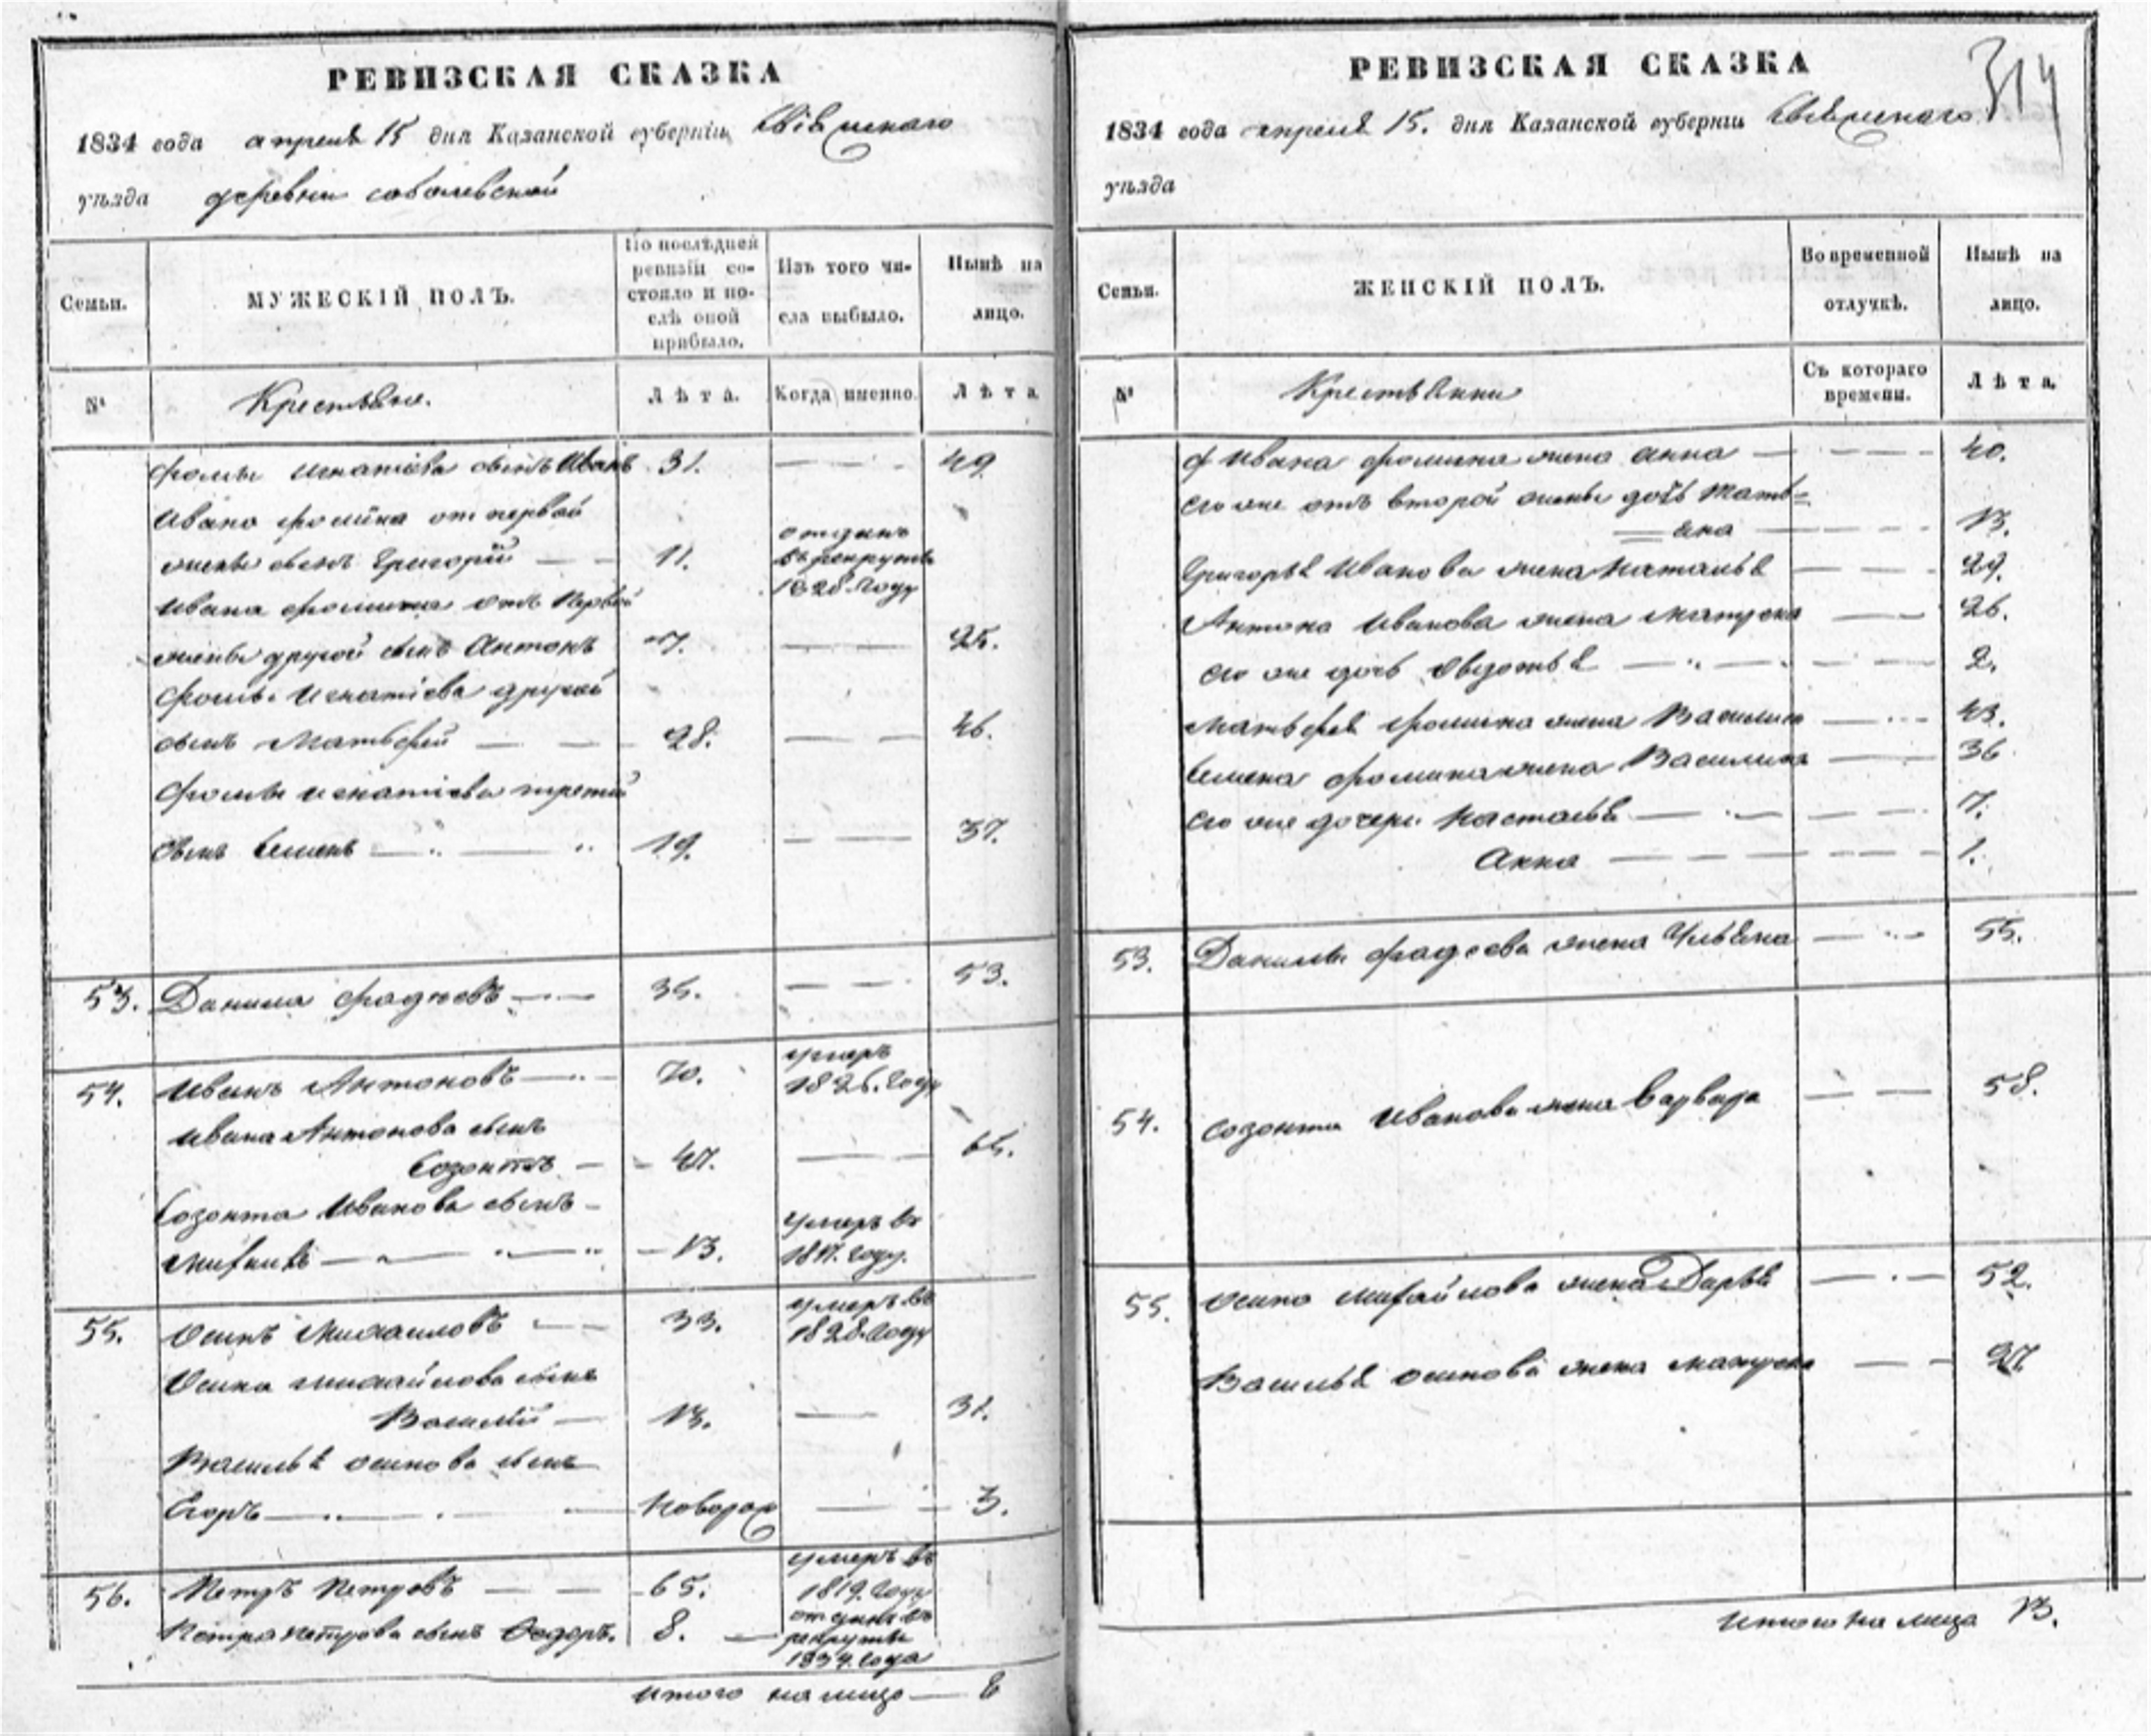 РЕВИЗСКАЯ СКАЗКА
1834 года апреля 15 дня Казанской губерніи Свіяжскаго
уѣзда деревни соболевской
Семьи.
МУЖЕСКІЙ ПОЛЪ.
По послѣдней
ревизіи со-
стояло и по-
слѣ оной
прибыло.
Изъ того чи-
сла выбыло.
Нынѣ на
лицо.
№
Крестьяне.
Лѣта.
Когда именно.
Лѣта
фомы игнатіева сынъ Иванъ 31. 49
Ивана фомина от первой
жены сынъ Григорій 11. отданъ
въ рекруты
1828 году
Ивана фомина отъ Первой
жены другой сынъ Антонъ 7. 25.
Фомы Игнатіева другой
сынъ Матвѣй 28. 46.
Фомы игнатіева третій
сынъ Семенъ 19. 37.
53. Данила фадѣевъ 35. 53.
54. Иванъ Антоновъ 70. умеръ
1826. году
Ивана Антонова сынъ
Созонтъ 47. 65.
Созонта Иванова сынъ
Михаила 13. умеръ въ
1817. году.
55. Осипъ Михаиловъ 33. умеръ въ
1828. году
Осипа михайлова сынъ
Василій 13. 31.
Василья осипова сынъ
Егоръ новорож 3.
56. Петръ Петровъ 65. умеръ въ
1819. году
Петра петрова сынъ Федоръ. 8. отданъ въ
рекруты
1834. года
итого на лицо 8
РЕВИЗСКАЯ СКАЗКА
314
1834 года апреля 15. дня Казанской губерніи Свіяжскаго
уѣзда
Семьи.
ЖЕНСКІЙ ПОЛЪ.
Во временной
отлучкѣ.
Нынѣ на
лицо.
№
Крестьянки
Съ котораго
времени.
Лѣта
Ивана фомина жена анна 40.
его же отъ второй жены дочь Мать=
=яна 13.
Григорья Иванова жена Наталья 29.
Антона Иванова жена матрена 26.
его же дочь Овдотья 2.
матвѣя фомина жена Василиса 43.
Семена фомина жена Василиса 36
его же дочери Настасья 7.
Анна 1.
53. Данилы фадѣева жена Ульяна 55.
54. Созонта Иванова жена Варвара 58.
55. Осипа михайлова жена Дарья 52.
Василья осипова жена матрена 27.
итого на лицо 13.